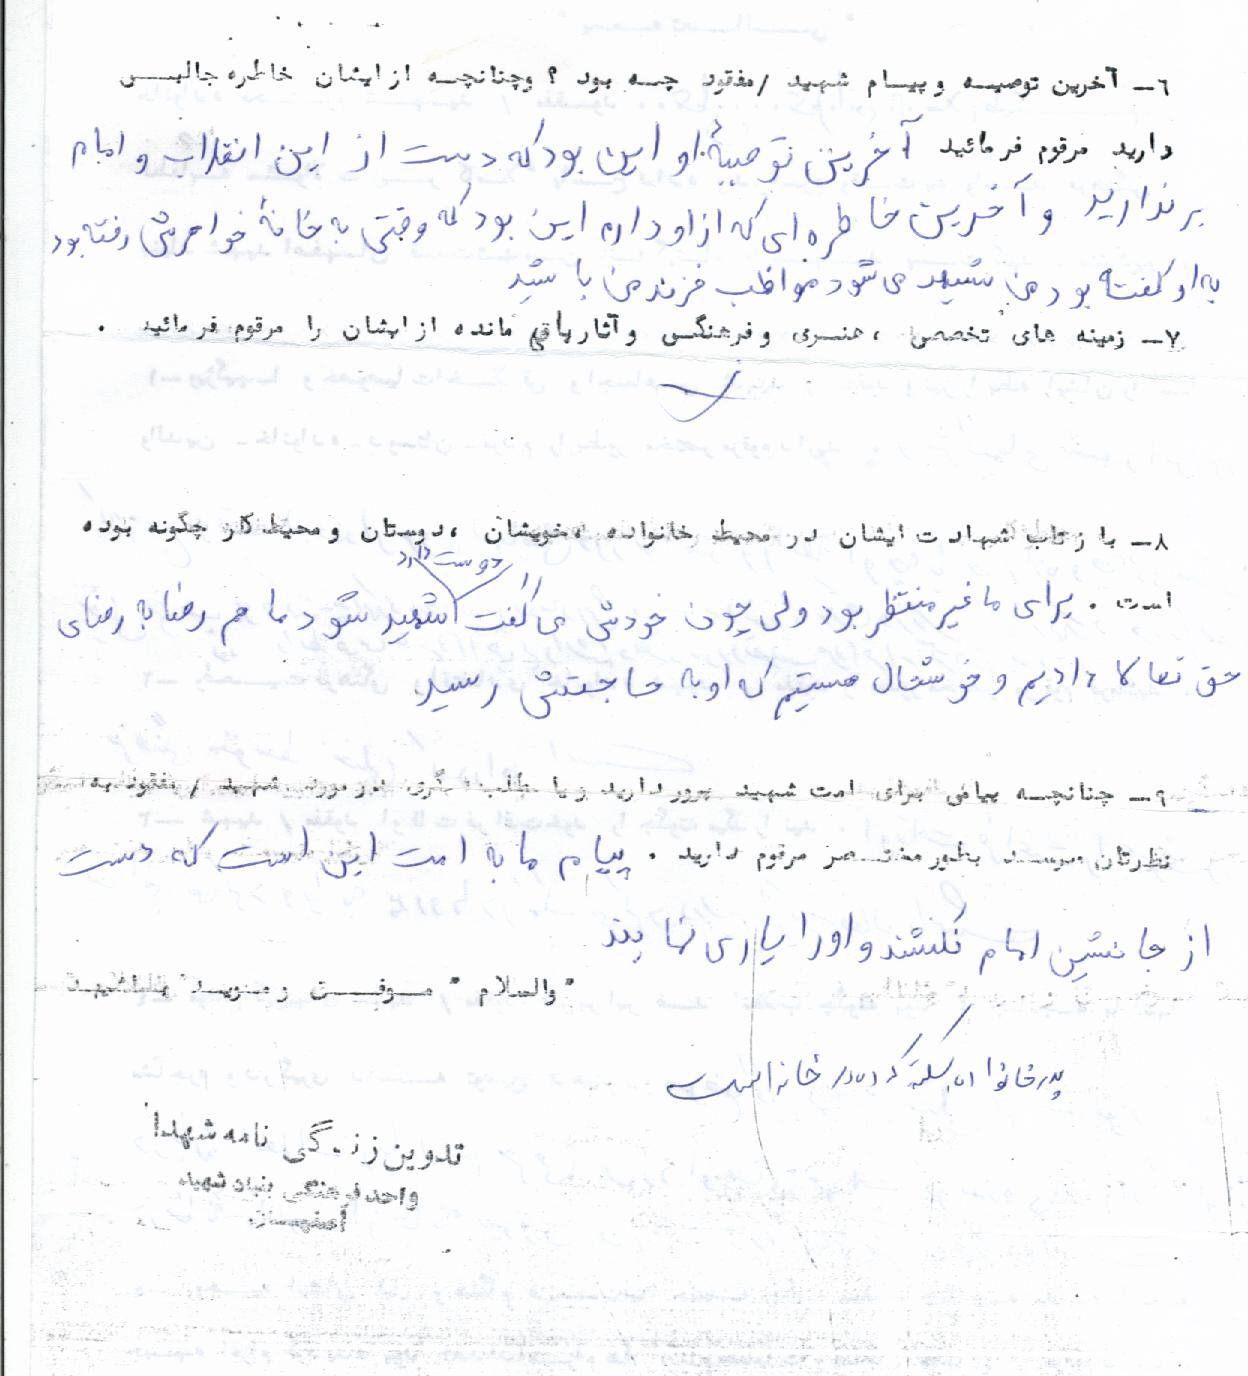 ۶ــ آخرین توصیه و پیام شهید /مفقود چه بود ؟ وچنانچه از ایشان خاطره جالبی
دارید مرقوم فرمائید آخرین توصیهٔ او این بود که دست از این انقلاب و امام
برندارید و آخرین خاطره ای که از او دارم این بود که وقتی به خانهٔ خواهرش رفته بود
به او گفته بود من شهید می شود مواظب فرزند من باشید
۷ــ زمینه های تخصصی ، هنری و فرهنگی و آثار باقی مانده از ایشان را مرقوم فرمائید .
۸ــ بازتاب شهادت ایشان در محیط خانواده ،خویشان ،دوستان و محیط کار چگونه بوده
دوست دارد
است . برای ما غیر منتظر بود ولی چون خودش می گفت شهید شود ما هم رضا به رضای
حق تعالا دادیم و خوشحال هستیم که او به حاجتش رسید.
۹ــ چنانچه پیامی برای امت شهید پرور دارید و یا مطلب دیگری در مورد شهید /مفقود به
نظرتان میرسد بطور مختصر مرقوم دارید . پیام ما به امت این است که دست
از جانشین امام نکشند و او را یاری نمایند
"والسلام " موفق و موید باشید
پدر خانواده سکته کرده در خانه است
تدوین زندگی نامه شهدا
واحد فرهنگی بنیاد شهید
اصفهان